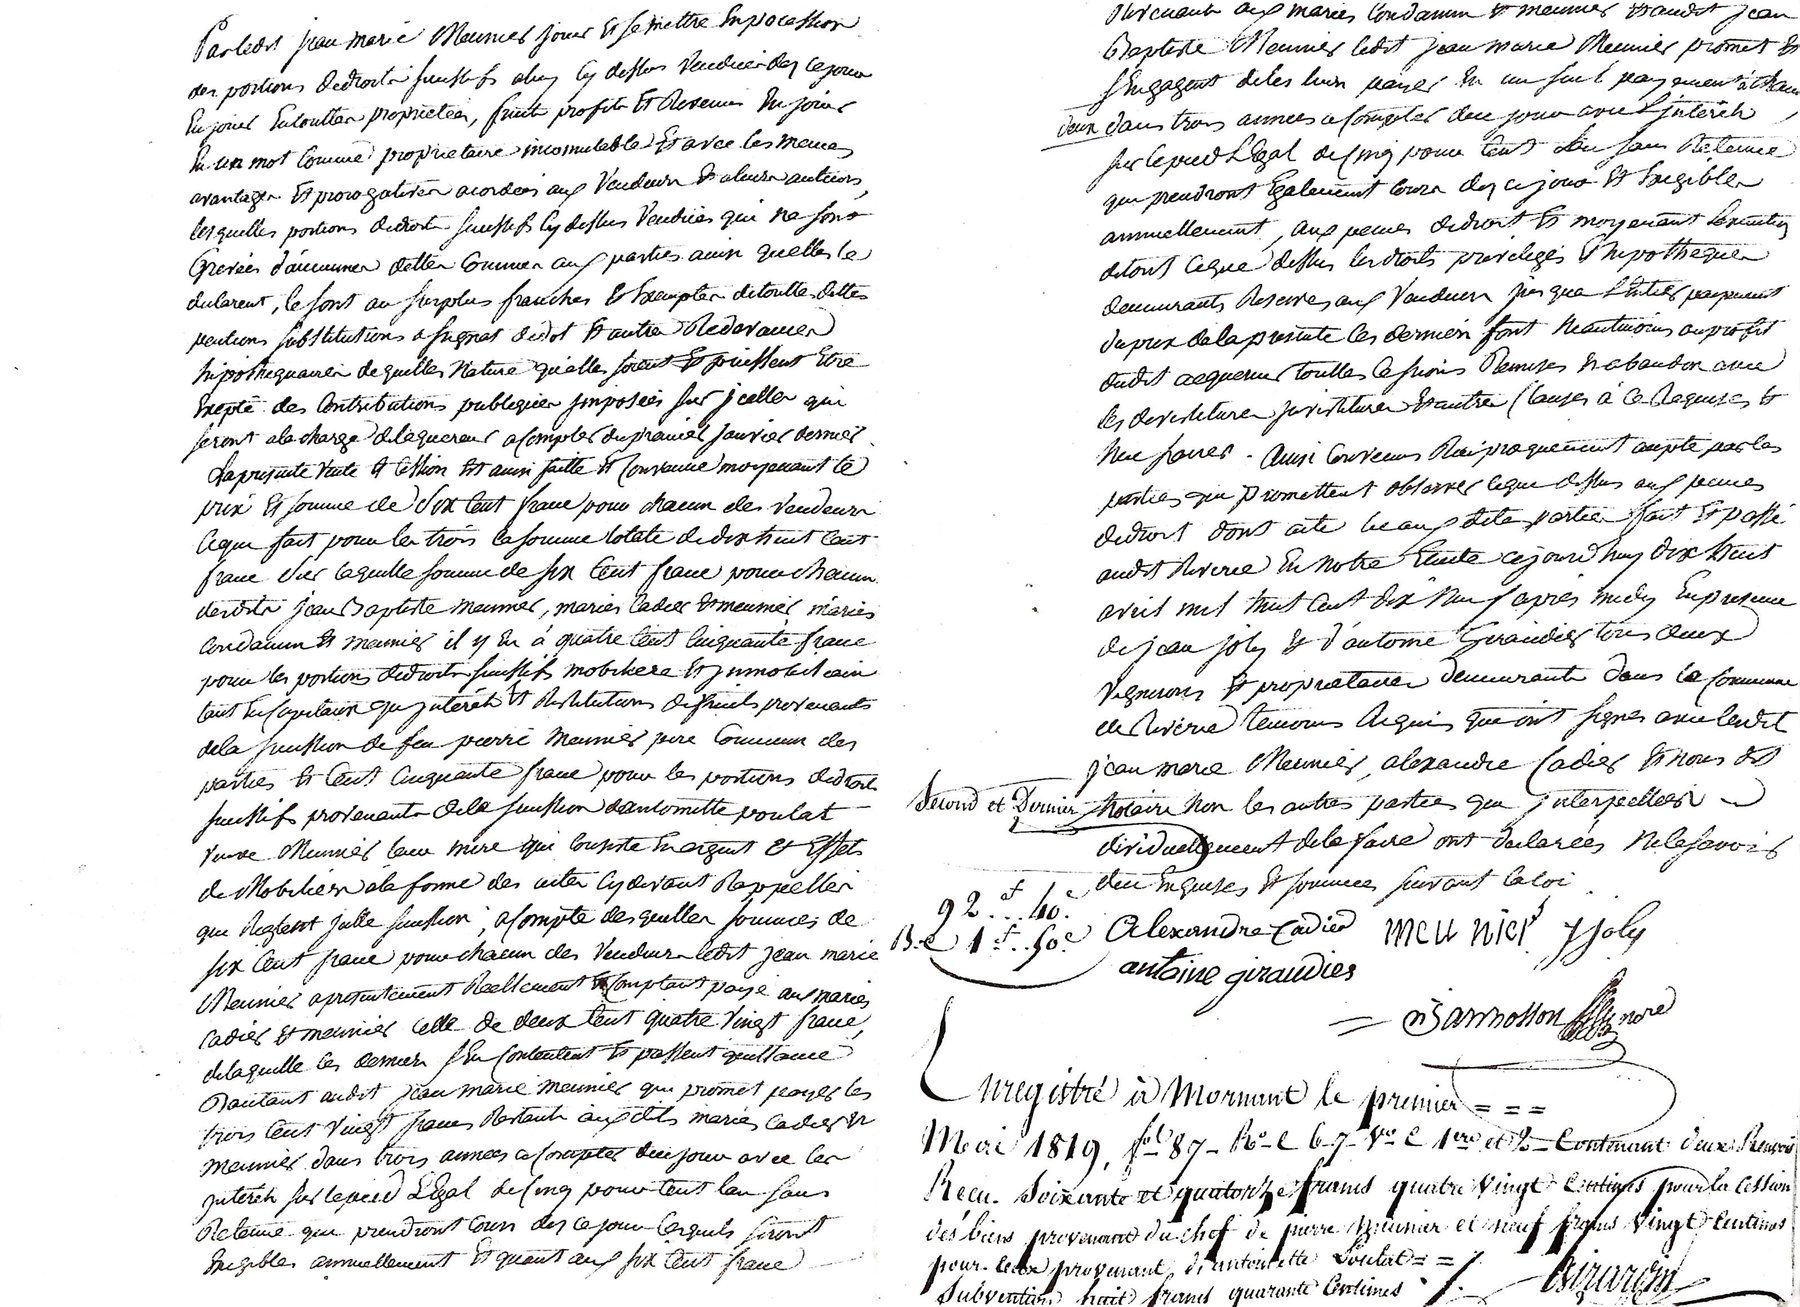 Par ledit jean marie Meunier jouir Et se mettre En possession
des portions de droits sucessifs cy dessus Vendus des ce jour
En jouir En toutte proprietée, fruits profits Et Revenus En jouir
En un mot Comme proprietaire incomutable Et avec les memes
avantages Et prerogatives acordées aux Vendeurs Et a leurs auteurs,
lesquelles portions de droits sucessifs Cy dessus Vendües qui ne sont
Grevées d'aucunes dettes Comunes aux parties ainsi quelles le
declarent, le sont au surplus franches Et Exemptes de touttes dettes
pentions substitutions assignat de dot Et autres Redevances
hipothequaires de quelles Nature quelles soient Et puissent Etre
Exepté des Contributions publiques jmposées sur jcelles qui
seront a la charge de laquereur a Compter du premier janvier dernier.
La presente Vente Et Cession Est ainsi faitte Et Convenue moyenant le
prix Et somme de six Cent franc pour chacun des Vendeurs
Ce qui fait pour les trois la somme totale de dix huit Cent
franc sur laquelle somme de six Cent franc pour chacun
desdits jean Baptiste meunier, mariés Cadier Et meunier, mariés
Condamin Et meunier il y En à quatre Cent Cinquante franc
pour les portions de droits sucessifs mobiliers Et jmmobiliers
tant En Capitaux qu jntérêts Et Restitutions de fruits provenants
de la sucession de feu pierre Meunier pere Commun des
parties Et Cent Cinquante franc pour les portions de droits
sucessifs provenants de la sucession dantoinette poulat
Veuve Meunier leur mere qui Consiste En argent Et Effets
de Mobiliers a la forme des actes Cy devant Rappellés
qui Reglent jcelle sucession, a Compte des quelles sommes de
six Cent franc pour chacun des Vendeurs ledit jean marie
Meunier a presentement Reellement Et Comptant payé aux mariés
Cadier Et meunier Celle de deux Cent quatre Vingt franc,
de laquelle les derniers s'En Contentent Et passent quittance
dautant audit jean marie meunier qui promet payer les
trois Cent Vingt francs Restants auxdits mariés Cadier Et
meunier dans trois années a Compter de ce jour avec les
jntérêts sur le pied Légal de Cinq pour Cent lan sans
Retenue qui prendront Cours des ce jour Lesquels seront
Exigibles annuellement Et quant aux six Cent franc
Revenants aux mariés Condamin Et meunier Et audit jean
Baptiste Meunier ledit jean marie Meunier promet Et
s'Engagent de les leur payer En un seul payement à chacun
deux dans trois années a Compter de ce jour avec L'jntérêts,
sur le pied Légal de Cinq pour Cent L'an sans Retenue
qui prendront Egalement Cours des ce jour Et Exigibles
annuellement, aux peines de droit Et moyenant L'Exécution
de tout Ce que dessus les droits privilegés Et hipotheques
demeurants Reserves aux Vendeurs jusqua L'Entier payement
du prix de la presente les derniers font Neantmoins au profit
dudit acquereur touttes Cessions Remises Et abandon avec
les devestitures jnvestitures Et autres Clauses à Ce Requises Et
Necessaires. Ainsi Convenu Reciproquement acepté par les
parties qui promettent observer Ceque dessus aux peines
de droit dont acte lu auxdites parties fait Et passé
audit Riverie En Notre Etude ce jourd'huy dix huit
avril mil huit Cent dix Neuf après midy En presence
de jean joly Et d'antoine Giraudier tous deux
Vignerons Et proprietaires demeurants dans la Commune
de Riverie temoins Requis qui ont signés avec ledit
jean marie Meunier, alexandre Cadier Et nous dit
Second et Dernier Notaire Non les autres parties qui jnterpellées
dividuellement de le faire ont declarées Ne le savoir
de ce Enquises Et sommées suivant la loi.
92f..40c
B.e 1f..50c
Alexandre Cadier meunier J joly
antoine giraudier
Enregistré à Mornant le premier ===
Mai 1819, fol 87 Ro C 6 7 Vo C 1ere et 2 Contenant deux Renvois
Reçu Soixante et quatorze francs quatre Vingt Centimes pour la Cession
des biens provenant du chef de pierre Meunier et neuf francs Vingt Centimes
pour Ceux provenant d'antoinette Poulat = = /.
Subvention huit francs quarante Centimes. /.